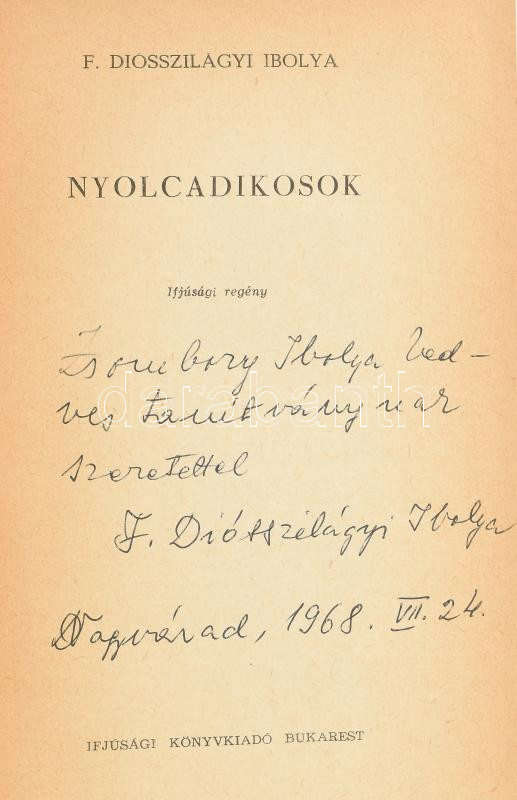 F. DIÓSSZILÁGYI IBOLYA
NYOLCADIKOSOK
Ifjúsági regény
Zsombory Ibolya ked-
ves tanítványnak
szeretettel
F. Diósszilágyi Ibolya
Nagyvárad, 1968. VII. 24.
IFJÚSÁGI KÖNYVKIADÓ BUKAREST
darabanth